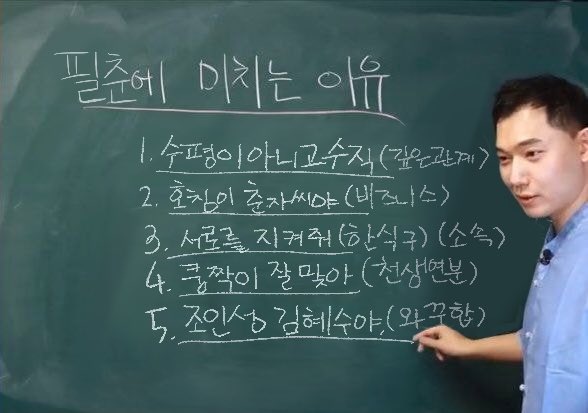 필춘에 미치는 이유
1. 수평이아니고수직(깊은관계)
2. 호칭이 춘자씨야(비즈니스)
3. 서로를 지켜줘(한식구)(소속)
4. 쿵짝이 잘맞아(천생연분)
5. 조인성 김혜수야.(와꾸합)